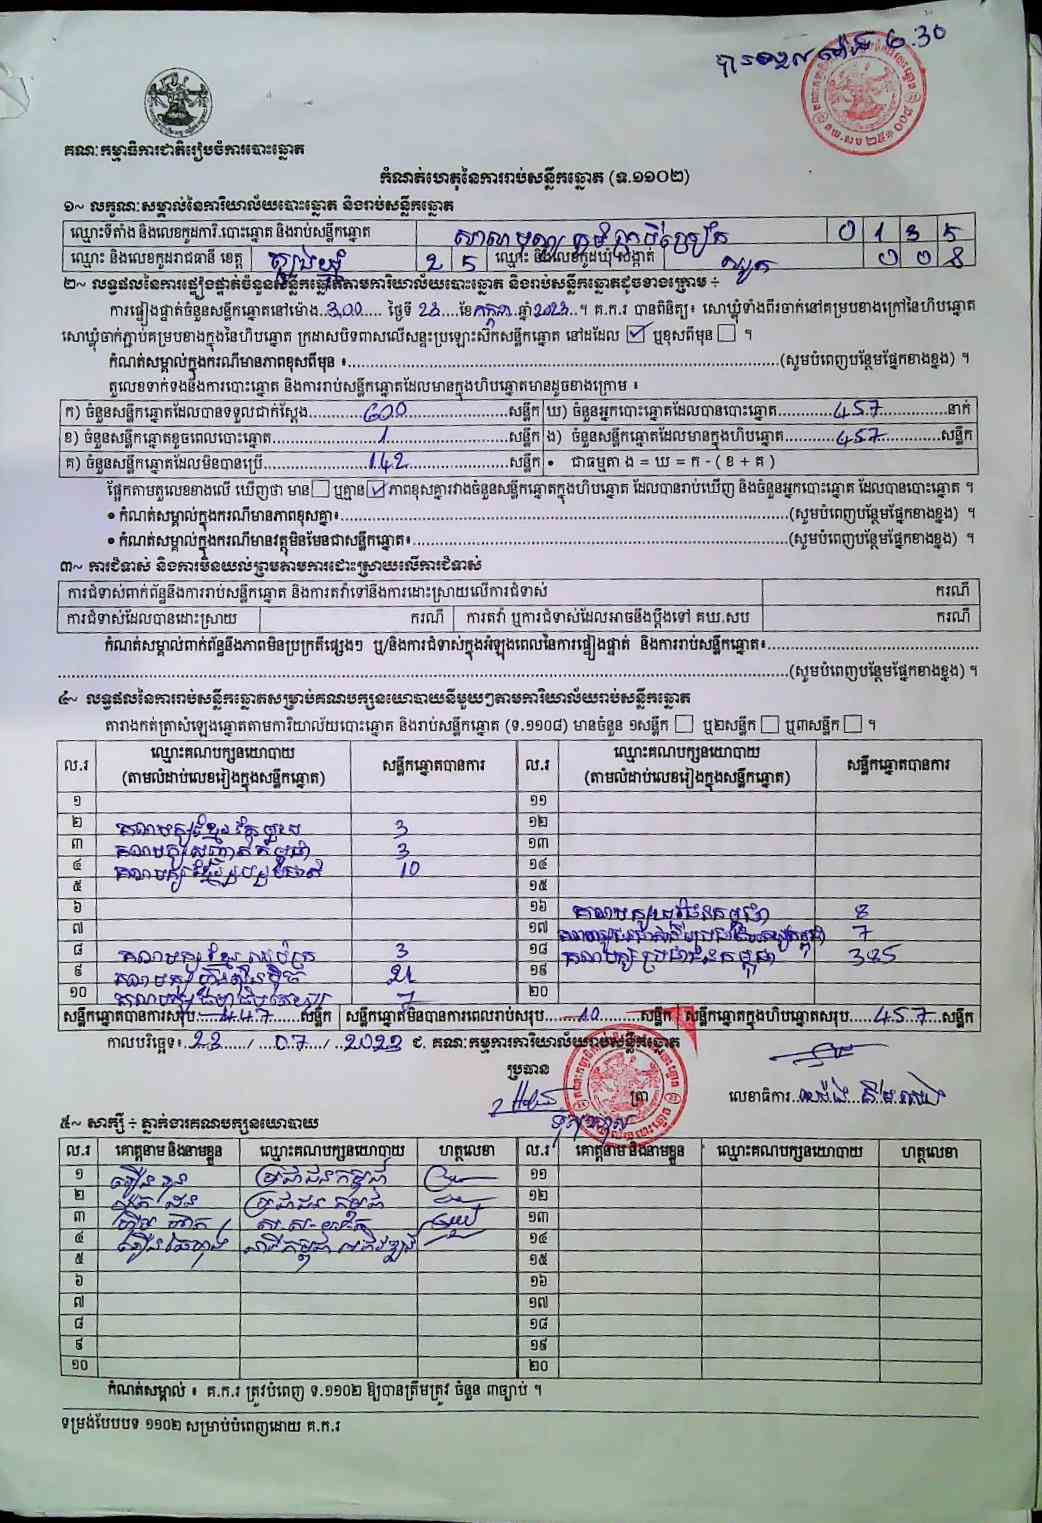 បានទទួល ម៉ោង ២.30
គណៈកម្មាធិការជាតិរៀបចំការបោះឆ្នោត
កំណត់ហេតុនៃការរាប់សន្លឹកឆ្នោត (ទ.១១០២)
១~ លក្ខណៈសម្គាល់នៃការិយាល័យបោះឆ្នោត និងរាប់សន្លឹកឆ្នោត
ឈ្មោះទីតាំង និងលេខកូដការិ.បោះឆ្នោត និងរាប់សន្លឹកឆ្នោត 0 1 3 5
ឈ្មោះ និងលេខកូដរាជធានី ខេត្ត ត្បូងឃ្មុំ 2 5 ឈ្មោះ និងលេខកូដឃុំ សង្កាត់ 0 0 8
២~ លទ្ធផលនៃការផ្ទៀងផ្ទាត់ចំនួនសន្លឹកឆ្នោតតាមការិយាល័យបោះឆ្នោត និងរាប់សន្លឹកឆ្នោតដូចខាងក្រោម ÷
ការផ្ទៀងផ្ទាត់ចំនួនសន្លឹកឆ្នោតនៅម៉ោង..3,00..... ថ្ងៃទី 23....ខែកក្កដា.ឆ្នាំ2023..។ គ.ក.រ បានពិនិត្យ៖ សោឃ្លុំទាំងពីរចាក់នៅគម្របខាងក្រៅនៃហិបឆ្នោត
សោឃ្លុំចាក់ភ្ជាប់គម្របខាងក្នុងនៃហិបឆ្នោត ក្រដាសបិទពាសលើសន្ទះប្រឡោះសិកសន្លឹកឆ្នោត នៅដដែល ☑ ឬខុសពីមុន ☐ ។
កំណត់សម្គាល់ក្នុងករណីមានភាពខុសពីមុន ៖.....(សូមបំពេញបន្ថែមផ្នែកខាងខ្នង) ។
តួលេខទាក់ទងនឹងការបោះឆ្នោត និងការរាប់សន្លឹកឆ្នោតដែលមានក្នុងហិបឆ្នោតមានដូចខាងក្រោម ៖
ក) ចំនួនសន្លឹកឆ្នោតដែលបានទទួលជាក់ស្តែង.....600.....សន្លឹក ឃ) ចំនួនអ្នកបោះឆ្នោតដែលបានបោះឆ្នោត.....457.....នាក់
ខ) ចំនួនសន្លឹកឆ្នោតខូចពេលបោះឆ្នោត.....1.....សន្លឹក ង) ចំនួនសន្លឹកឆ្នោតដែលមានក្នុងហិបឆ្នោត.....457.....សន្លឹក
គ) ចំនួនសន្លឹកឆ្នោតដែលមិនបានប្រើ.....142.....សន្លឹក • ជាធម្មតា ង = ឃ = ក - ( ខ + គ )
ផ្អែកតាមតួលេខខាងលើ ឃើញថា មាន ☐ ឬគ្មាន ☑ ភាពខុសគ្នារវាងចំនួនសន្លឹកឆ្នោតក្នុងហិបឆ្នោត ដែលបានរាប់ឃើញ និងចំនួនអ្នកបោះឆ្នោត ដែលបានបោះឆ្នោត ។
• កំណត់សម្គាល់ក្នុងករណីមានភាពខុសគ្នា៖.....(សូមបំពេញបន្ថែមផ្នែកខាងខ្នង) ។
• កំណត់សម្គាល់ក្នុងករណីមានវត្ថុមិនមែនជាសន្លឹកឆ្នោត៖.....(សូមបំពេញបន្ថែមផ្នែកខាងខ្នង) ។
៣~ ការជំទាស់ និងការមិនយល់ព្រមតាមការដោះស្រាយលើការជំទាស់
ការជំទាស់ពាក់ព័ន្ធនឹងការរាប់សន្លឹកឆ្នោត និងការតវ៉ាទៅនឹងការដោះស្រាយលើការជំទាស់ ករណី
ការជំទាស់ដែលបានដោះស្រាយ ករណី ការតវ៉ា ឬការជំទាស់ដែលអាចនឹងប្តឹងទៅ គឃ.សប ករណី
កំណត់សម្គាល់ពាក់ព័ន្ធនឹងភាពមិនប្រក្រតីផ្សេងៗ ឬ/និងការជំទាស់ក្នុងអំឡុងពេលនៃការផ្ទៀងផ្ទាត់ និងការរាប់សន្លឹកឆ្នោត៖.....
.....(សូមបំពេញបន្ថែមផ្នែកខាងខ្នង) ។
៤~ លទ្ធផលនៃការរាប់សន្លឹកឆ្នោតសម្រាប់គណបក្សនយោបាយនីមួយៗតាមការិយាល័យរាប់សន្លឹកឆ្នោត
តារាងកត់ត្រាសំឡេងឆ្នោតតាមការិយាល័យបោះឆ្នោត និងរាប់សន្លឹកឆ្នោត (ទ.១១០៨) មានចំនួន ១សន្លឹក ☐ ឬ២សន្លឹក ☐ ឬ៣សន្លឹក ☐ ។
ល.រ ឈ្មោះគណបក្សនយោបាយ (តាមលំដាប់លេខរៀងក្នុងសន្លឹកឆ្នោត) សន្លឹកឆ្នោតបានការ ល.រ ឈ្មោះគណបក្សនយោបាយ (តាមលំដាប់លេខរៀងក្នុងសន្លឹកឆ្នោត) សន្លឹកឆ្នោតបានការ
១ ១១
២ គណបក្ស 3 ១២
៣ គណបក្ស 3 ១៣
៤ គណបក្ស 10 ១៤
៥ ១៥
៦ ១៦ គណបក្ស 8
៧ ១៧ 7
៨ គណបក្ស 3 ១៨ គណបក្សប្រជាជនកម្ពុជា 385
៩ គណបក្សហ្វ៊ុនស៊ិនប៉ិច 21 ១៩
១០ គណបក្ស 7 ២០
សន្លឹកឆ្នោតបានការសរុប.....447.....សន្លឹក សន្លឹកឆ្នោតមិនបានការពេលរាប់សរុប.....10.....សន្លឹក សន្លឹកឆ្នោតក្នុងហិបឆ្នោតសរុប.....457...សន្លឹក
កាលបរិច្ឆេទ៖..23..../..07.../..2023 ជ. គណៈកម្មការការិយាល័យរាប់សន្លឹកឆ្នោត
ប្រធាន
ត្រា
លេខាធិការ
៥~ សាក្សី ÷ ភ្នាក់ងារគណបក្សនយោបាយ
ល.រ គោត្តនាម និងនាមខ្លួន ឈ្មោះគណបក្សនយោបាយ ហត្ថលេខា ល.រ គោត្តនាម និងនាមខ្លួន ឈ្មោះគណបក្សនយោបាយ ហត្ថលេខា
១ ប្រជាជនកម្ពុជា ១១
២ ប្រជាជនកម្ពុជា ១២
៣ ១៣
៤ ១៤
៥ ១៥
៦ ១៦
៧ ១៧
៨ ១៨
៩ ១៩
១០ ២០
កំណត់សម្គាល់ ៖ គ.ក.រ ត្រូវបំពេញ ទ.១១០២ ឱ្យបានត្រឹមត្រូវ ចំនួន ៣ច្បាប់ ។
ទម្រង់បែបបទ ១១០២ សម្រាប់បំពេញដោយ គ.ក.រ